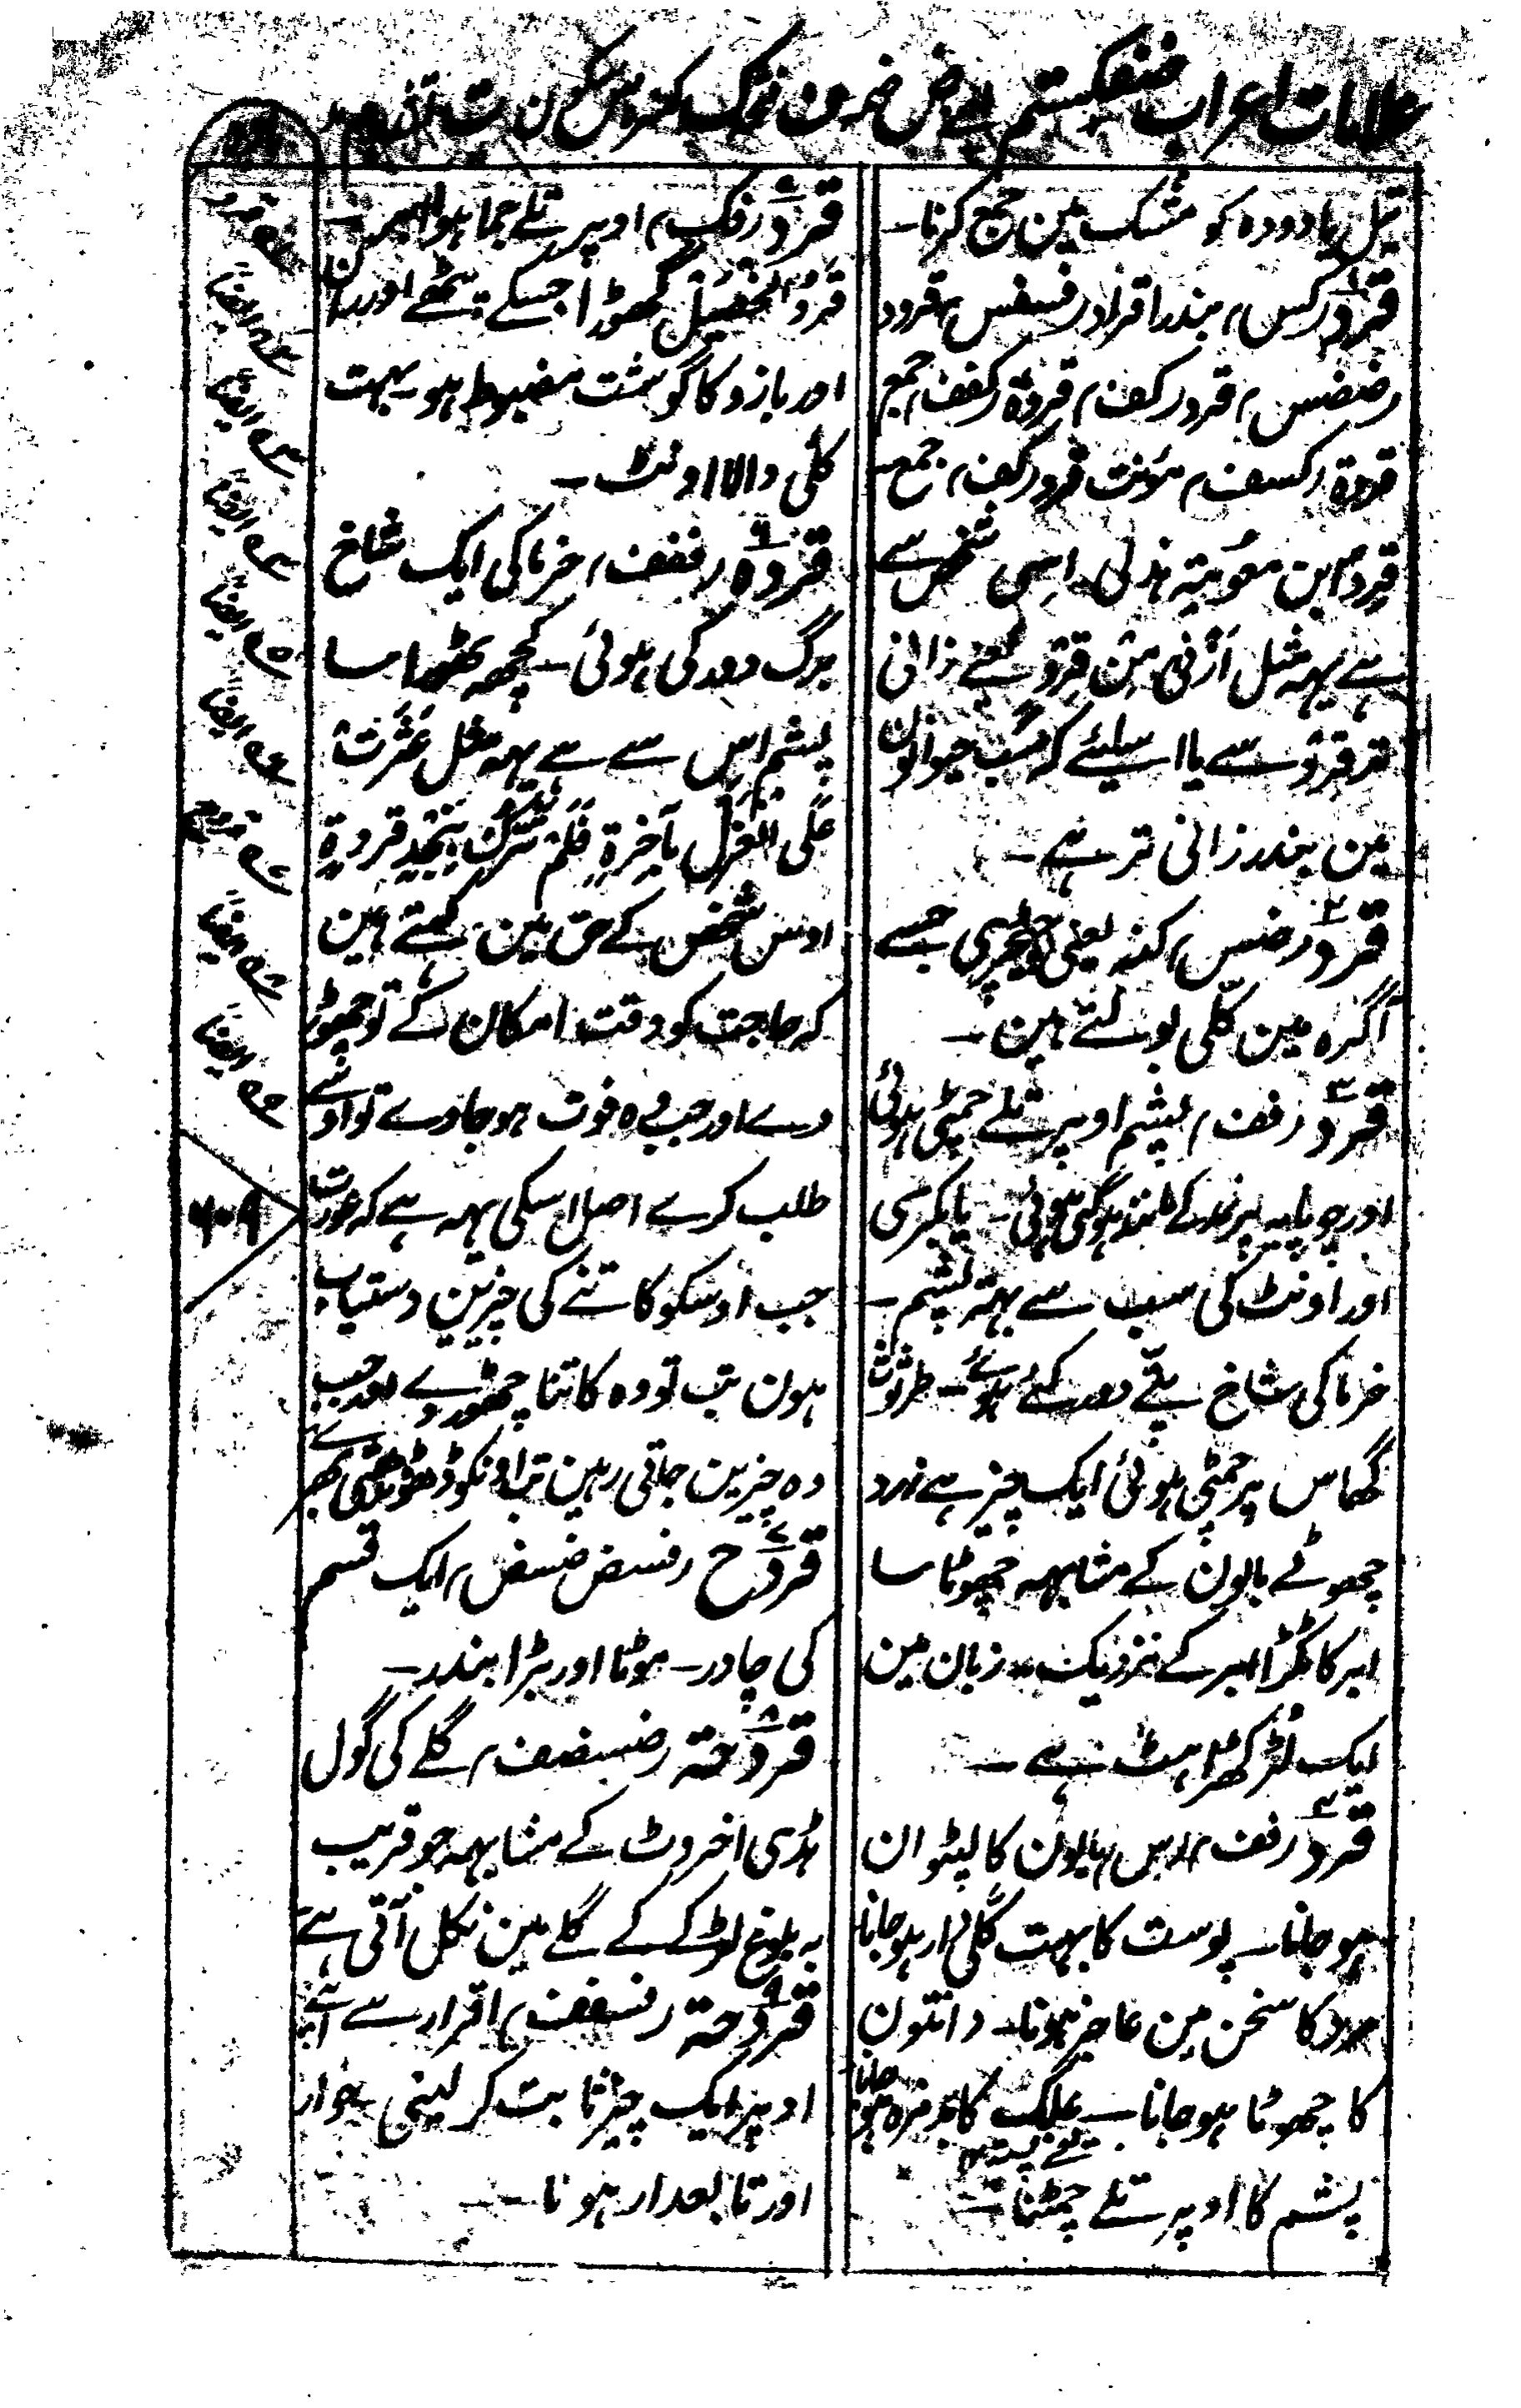 علامات اعراب
تیل یا دودہ کو مشک مین جمع کرنا۔
قرد رکس، بندر اقراد رفسفس، قرود
رضضس، قرد رکف، قردۃ رکفف، جمع
قردۃ رکسف، مؤنث قرد رکف، جمع۔
قرد ابن معویۃ ہذلی اسی شخص سے
ہے یہہ مثل اَزْنیٰ مِن قِرْدٍ یعنے زانی
تر قرد سے یا اسلیئے کہ سب حیوانون
مین بندر زانی تر ہے۔
قرد رضس، کنہ یعنی جسے
آگرہ مین کلّی بولتے ہین۔
قرد رفف، پشم اوپر تلے جمٹی ہوئی
اور چوپایہ پر نمد کے مانند ہو گئی ہوئی۔ یا بکری
اور اونٹ کی سب سے بہتر پشم۔
خرما کی شاخ پتے دور کئے ہوئے۔ طرثوث
گھاس پر جمٹی ہوئی ایک چیز ہے زرد
چھوٹے بالون کے مشابہہ چھوٹا سا
ابر کا ٹکڑا ابر کے نزدیک۔ زبان مین
ایک لڑکھڑاہٹ ہے۔
قرد رفف، بالون کا لپٹوان
ہو جانا۔ پوست کا بہت گلّی دار ہو جانا
مرد کا سخن مین عاجز ہونا۔ دانتون
کا چھوٹا ہو جانا۔ علک کا بدمزہ ہو جانا
پشم کا اوپر تلے چمٹنا۔
قرد رفک، اوپر تلے جما ہوا ابر۔
قرد الخصیل گھوڑا جسکے پٹھے اور ران
اور بازو کا گوشت مضبوط ہو۔ بہت
کلّی والا اونٹ۔
قردۃ رفففف، خرما کی ایک شاخ
برگ دور کی ہوئی۔ کچھہ تھوڑا سا
پشم اس سے ہے یہہ مثل عَثَرَتْ
عَلَی الْغَزْلِ بِآخِرَۃٍ فَلَمْ تَتْرُکْ بِنَجْدٍ قَرَدَۃً
اوس شخص کے حق مین کہتے ہین
کہ حاجت کو وقت امکان کے تو چھوڑ
دے اور جب وہ فوت ہو جاوے تو اوسے
طلب کرے اصل اسکی یہہ ہے کہ عورت
جب اوسکو کاتنے کی چیزین دستیاب
ہون تب تو وہ کاتنا چھوڑ دے اور جب
وہ چیزین جاتی رہین تب اونکو ڈھونڈھتی پھرے
قردح رفسض ضسض، ایک قسم
کی چادر۔ موٹا اور بڑا بندر۔
قردحۃ رضسضف، گلے کی گول
ہڈی اخروٹ کے مشابہہ جو قریب
بہ بلوغ لڑکے کے گلے مین نکل آتی ہے
قردحۃ رفسففف، اقرار سے اپنے
اوپر ایک چیز ثابت کر لینی۔ خوار
اور تابعدار ہونا۔
ایضاً
ایضاً
ایضاً
ایضاً
ایضاً
ایضاً
ایضاً